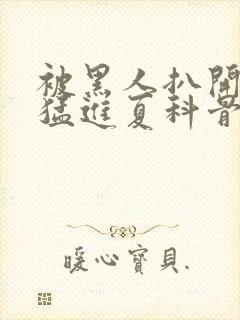 被黑人扒開
猛進夏科骨
暖心寶貝.